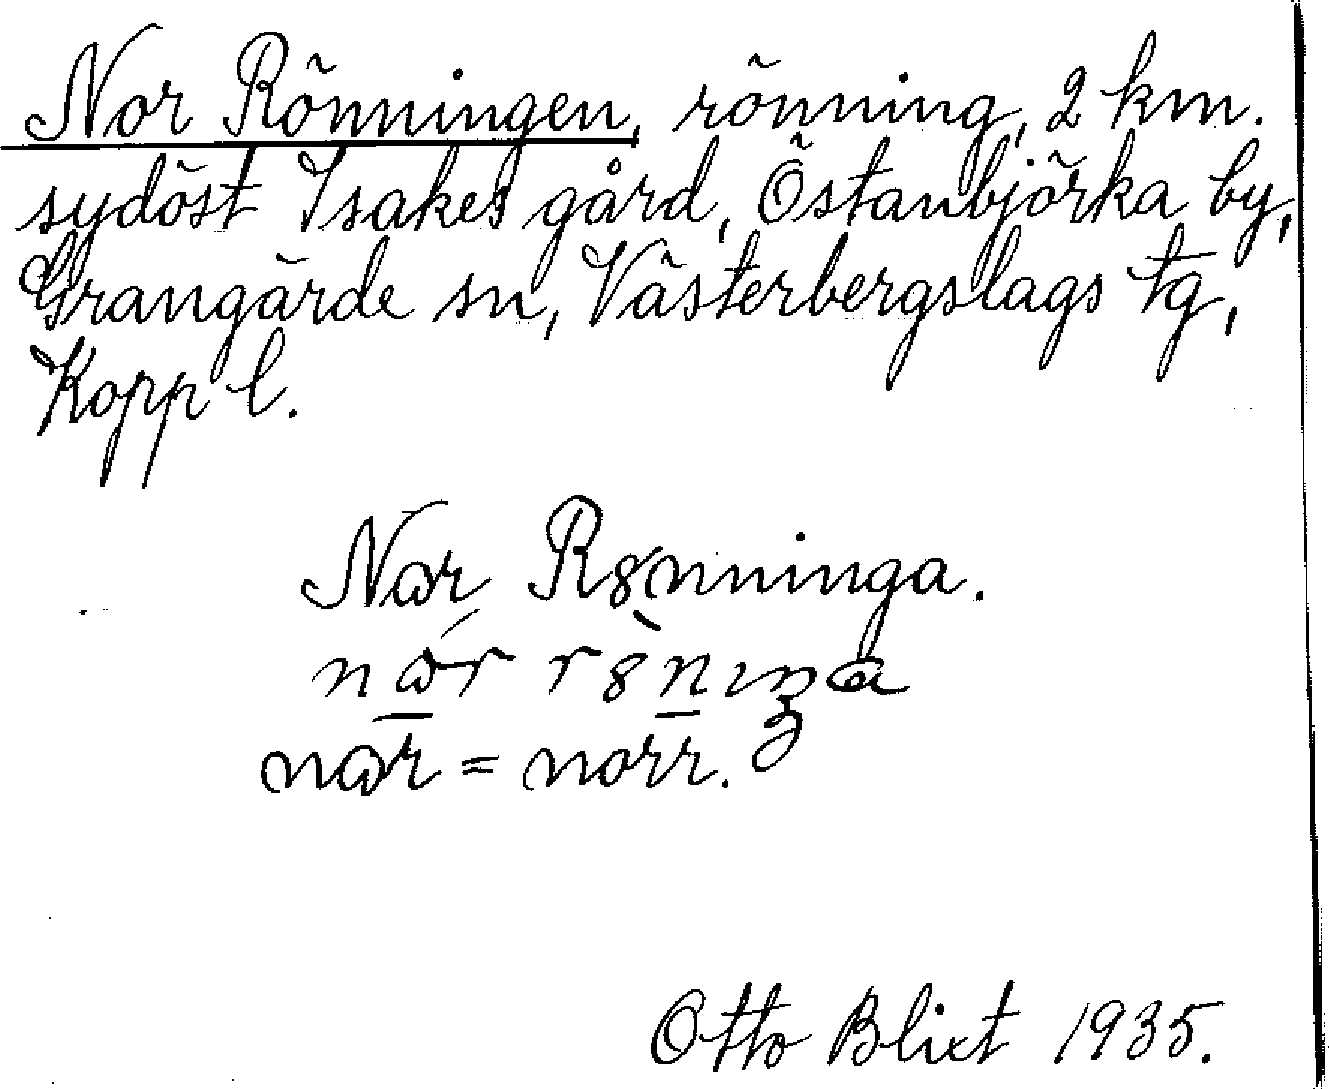 Nor Rönningen, rönning, 2 km.
sydöst Isakes gård, Östanbjörka by,
Grangärde sn, Västerbergslags tg,
Kopp l.
Nar Rönninga.
nar = norr.
Otto Blixt 1935.